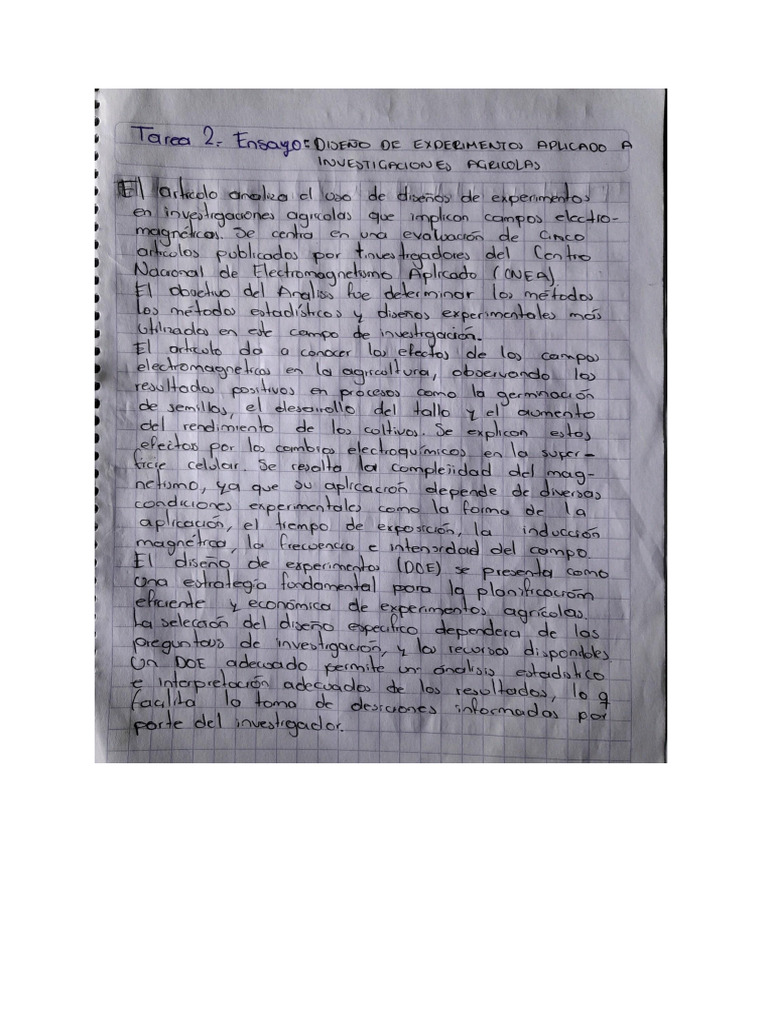 Tarea 2. Ensayo: DISEÑO DE EXPERIMENTOS APLICADO A
INVESTIGACIONES AGRICOLAS
El artículo analiza el uso de diseños de experimentos
en investigaciones agrícolas que implican campos electro-
magnéticos. Se centra en una evaluación de cinco
artículos publicados por investigadores del Centro
Nacional de Electromagnetismo Aplicado (CNEA).
El objetivo del Analisis fue determinar los métodos
los métodos estadísticos y diseños experimentales más
utilizados en este campo de investigación.
El artículo da a conocer los efectos de los campos
electromagnéticos en la agricultura, observando los
resultados positivos en procesos como la germinación
de semillas, el desarrollo del tallo y el aumento
del rendimiento de los cultivos. Se explican estos
efectos por los cambios electroquímicos en la super-
ficie celular. Se resalta la complejidad del mag-
netismo, ya que su aplicación depende de diversas
condiciones experimentales como la forma de la
aplicación, el tiempo de exposición, la inducción
magnética, la frecuencia e intensidad del campo.
El diseño de experimentos (DOE) se presenta como
una estrategia fundamental para la planificación
eficiente y económica de experimentos agrícolas.
La selección del diseño específico dependera de las
preguntas de investigación, y los recursos disponibles
Un DOE adecuado permite un análisis estadístico
e interpretación adecuados de los resultados, lo q
facilita la toma de desiciones informadas por
parte del investigador.